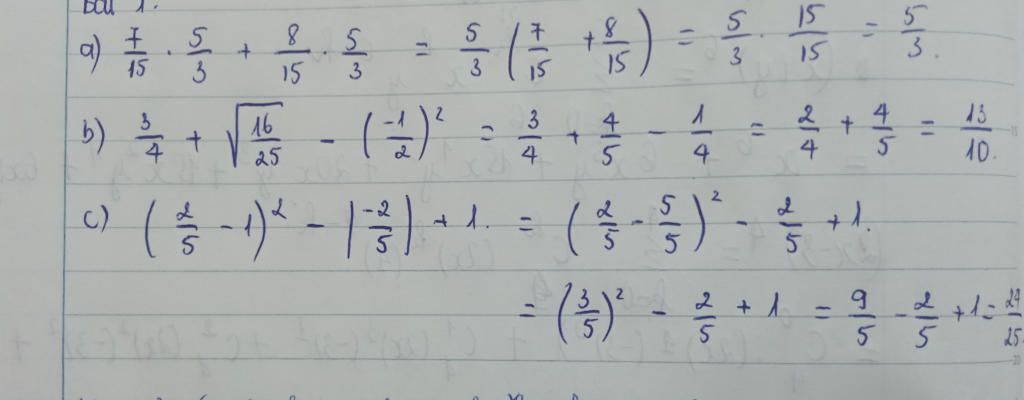 Bài 1.
a) 7/15 · 5/3 + 8/15 · 5/3 = 5/3 (7/15 + 8/15) = 5/3 · 15/15 = 5/3.
b) 3/4 + √(16/25) - (-1/2)² = 3/4 + 4/5 - 1/4 = 2/4 + 4/5 = 13/10.
c) (2/5 - 1)² - |-2/5| + 1. = (2/5 - 5/5)² - 2/5 + 1.
= (3/5)² - 2/5 + 1 = 9/5 - 2/5 + 1 = 24/25